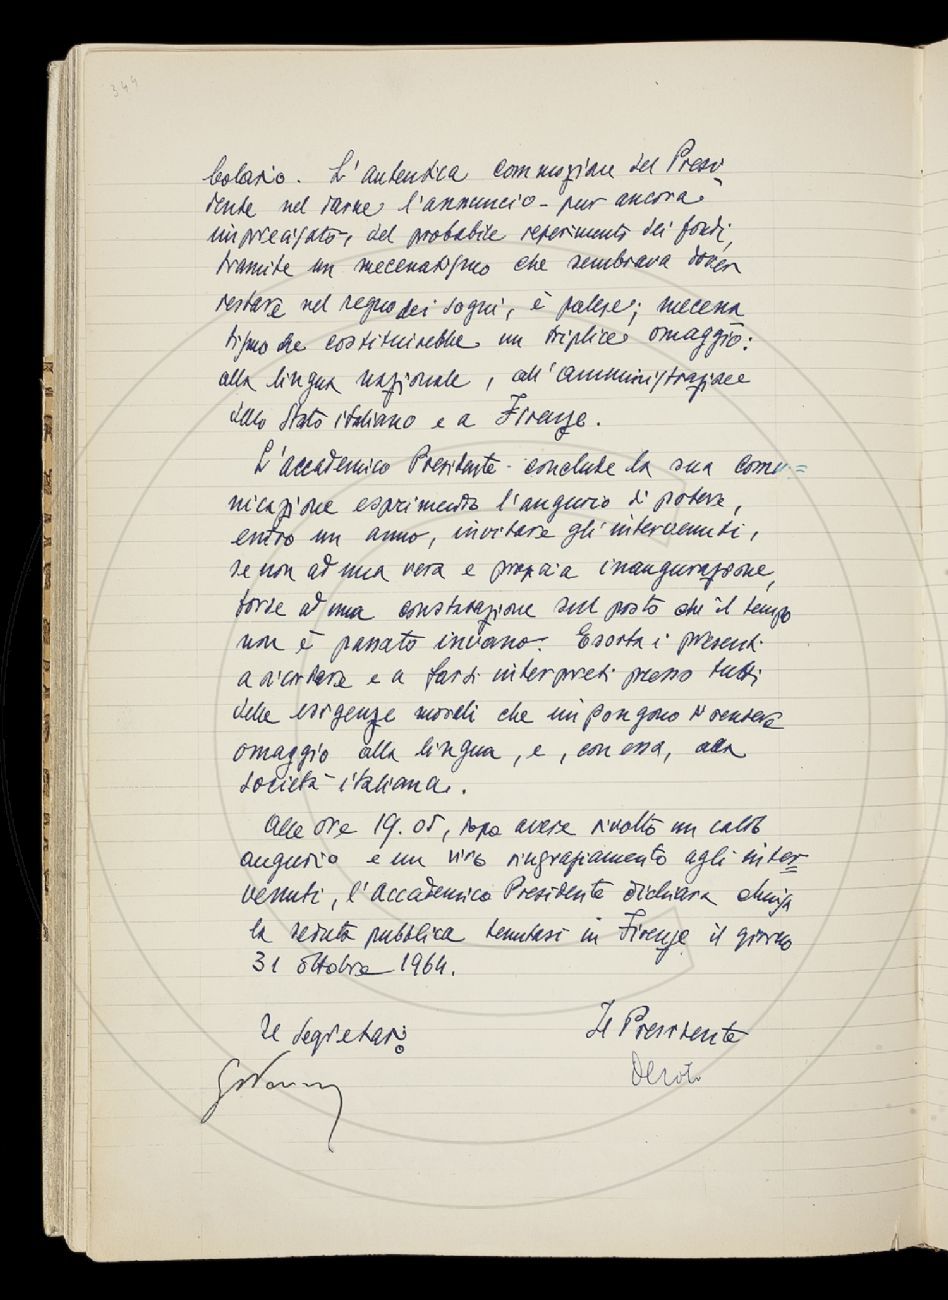 344
bolario. L'autentica commozione del Presi
dente nel darne l'annuncio - pur ancora
imprecisato, del probabile reperimento dei fondi,
tramite un mecenatismo che sembrava dover
restare nel regno dei sogni, è palese; mecena
tismo che costituirebbe un triplice omaggio:
alla lingua nazionale, all'amministrazione
dello Stato italiano e a Firenze.
L'accademico Presidente conclude la sua comu=
nicazione esprimendo l'augurio di potere,
entro un anno, invitare gli intervenuti,
se non ad una vera e propria inaugurazione,
forse ad una constatazione sul posto che il tempo
non è passato invano. Esorta i presenti
a ricordare e a farsi interpreti presso tutti
delle esigenze morali che impongono di rendere
omaggio alla lingua, e, con essa, alla
società italiana.
Alle ore 19.05, dopo avere rivolto un caldo
augurio e un vivo ringraziamento agli inter=
venuti, l'accademico Presidente dichiara chiusa
la seduta pubblica tenutasi in Firenze il giorno
31 ottobre 1964.
Il Segretario
Il Presidente
Devoto